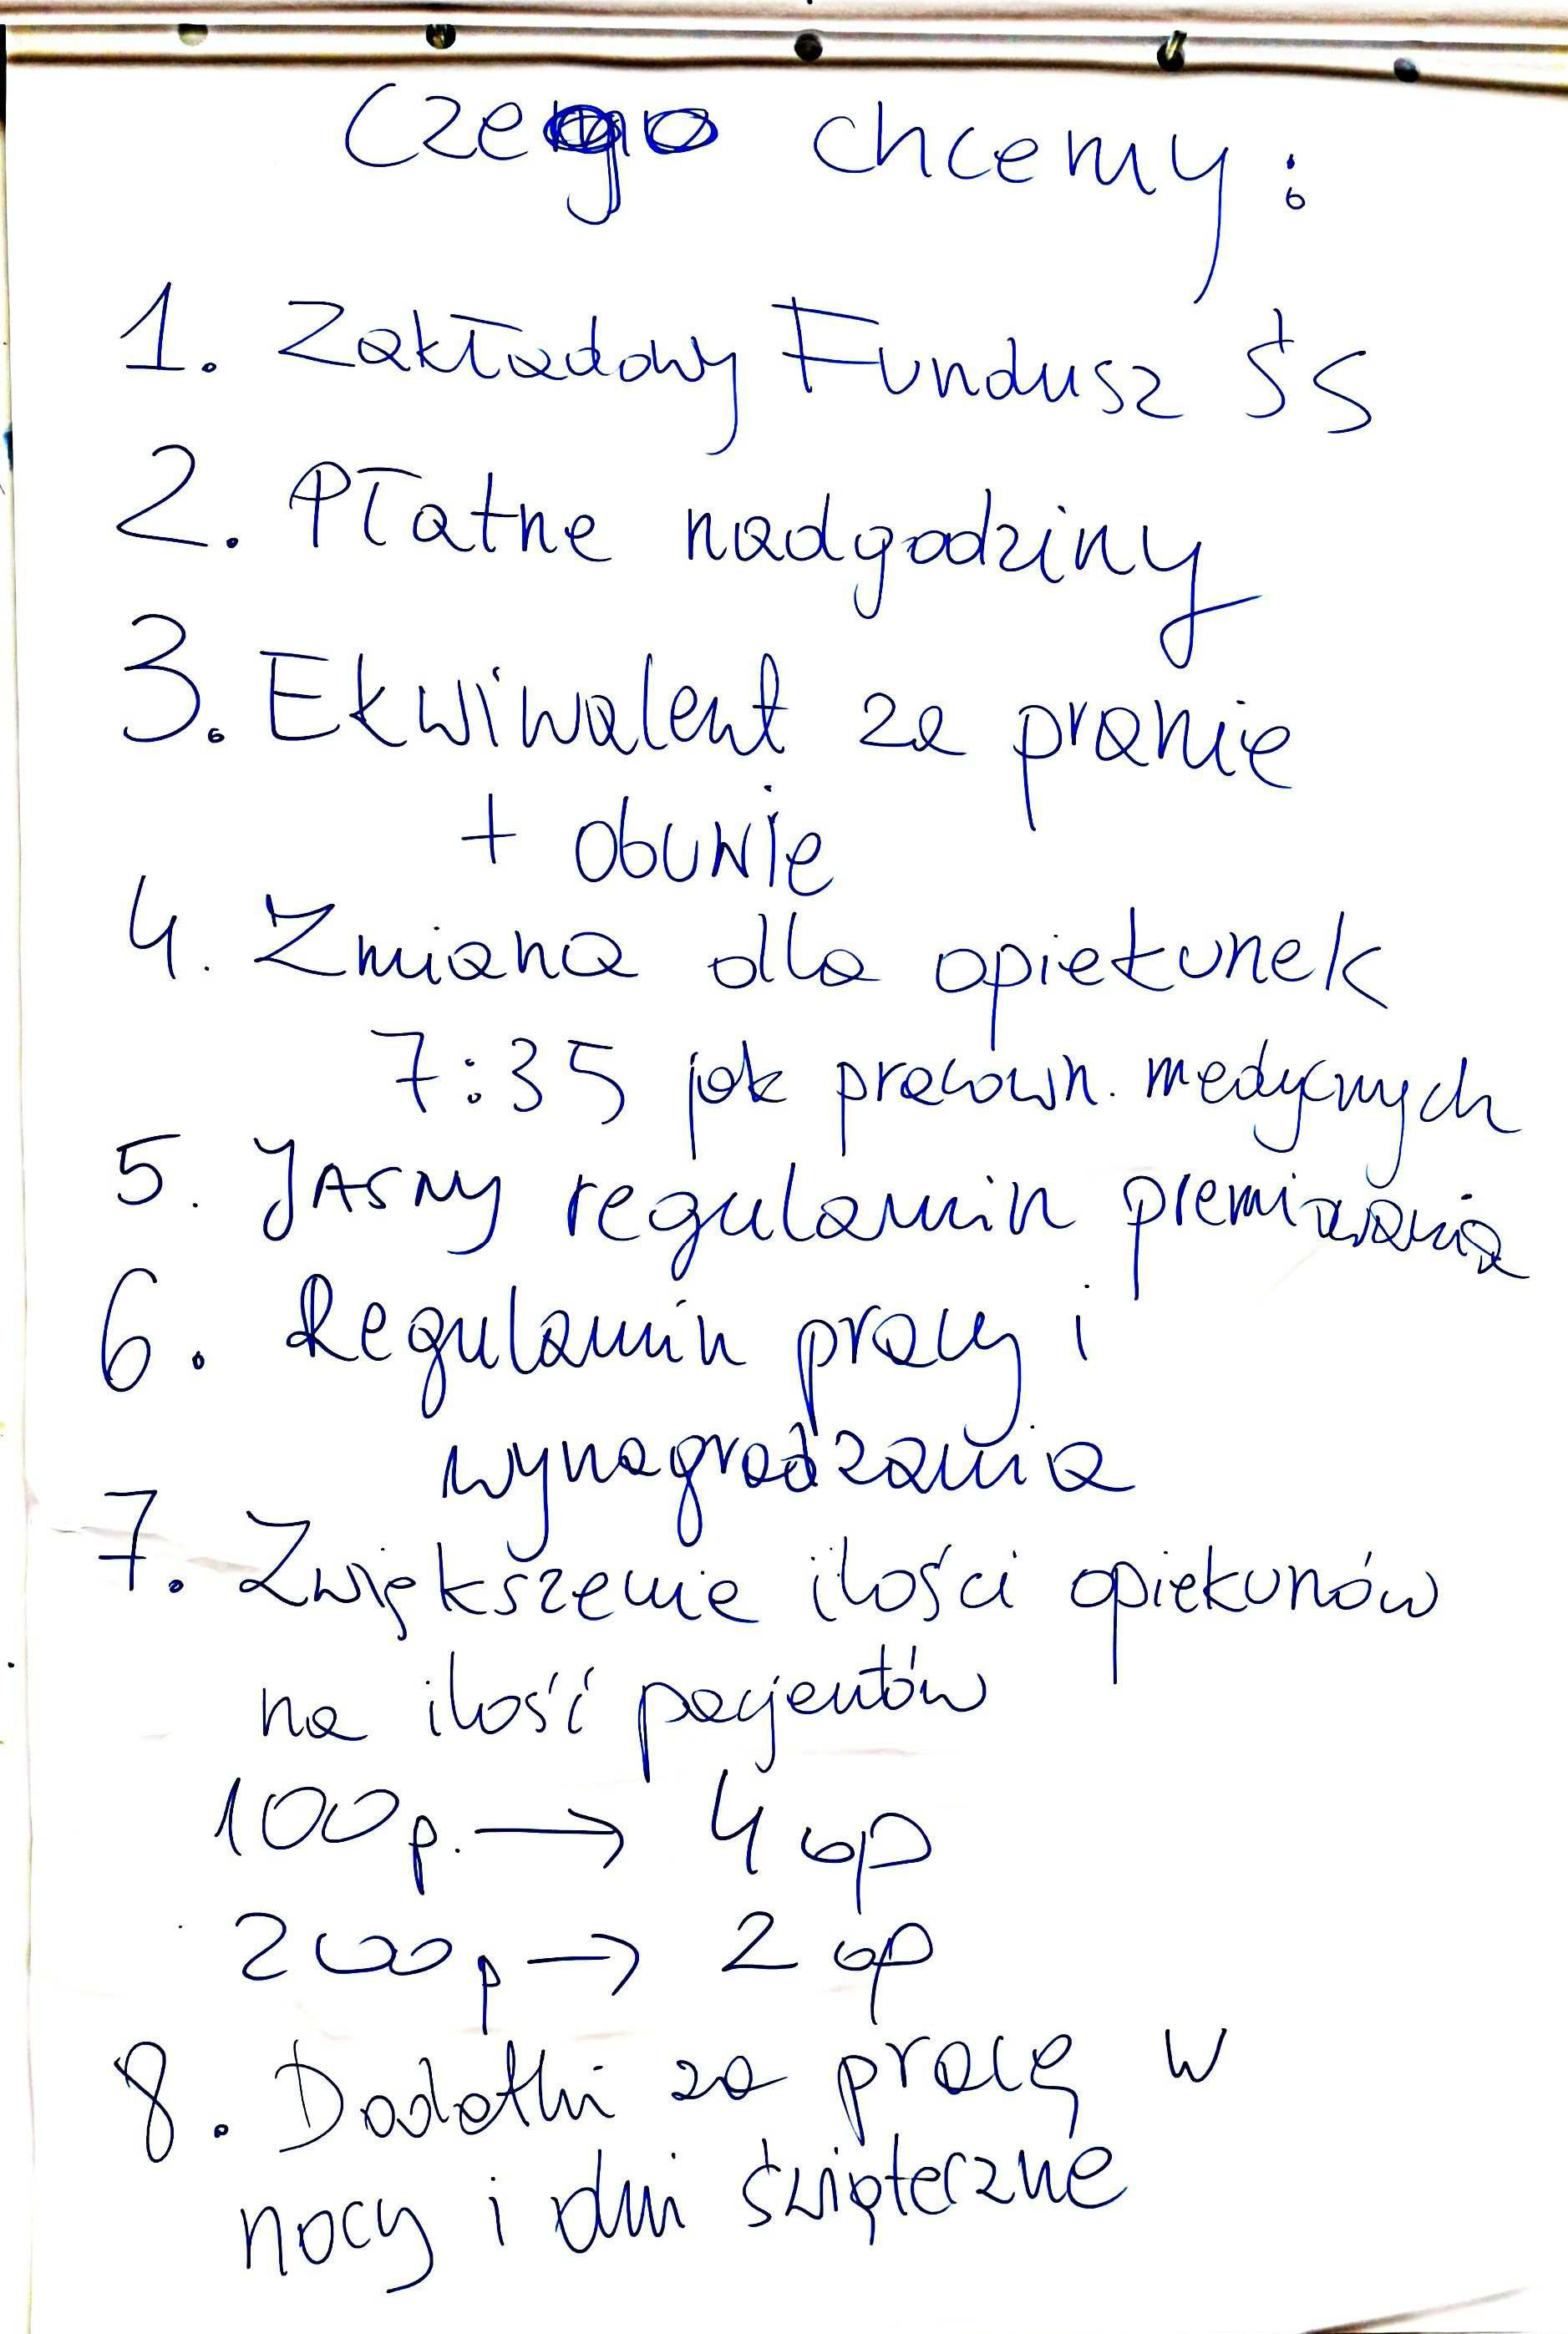 Czego chcemy:
1. Zakładowy Fundusz ŚS
2. Płatne nadgodziny
3. Ekwiwalent za pranie
+ obuwie
4. Zmiana dla opiekunek
7:35 jak pracown. medycznych
5. JASNY regulamin premiowania
6. Regulamin pracy i
wynagradzania
7. Zwiększenie ilości opiekunów
na ilość pacjentów
100p. → 4 op
200p → 2 op
8. Dodatki za pracę w
nocy i dni świąteczne